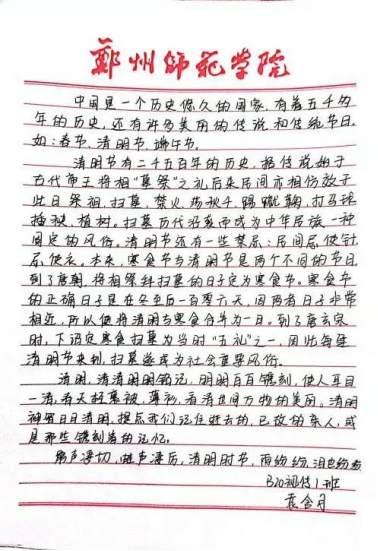 鄭州師範學院
中国是一个历史悠久的国家，有着五千多
年的历史，还有许多美丽的传说和传统节日。
如：春节、清明节、端午节。
清明节有二千五百年的历史，据传说始于
古代帝王将相“墓祭”之礼后来民间亦相仿效于
此日祭祖，扫墓，禁火，荡秋千，踢蹴鞠，打马球
插柳，植树。扫墓历代沿袭而成为中华民族一种
固定的风俗。清明节还有一些禁忌：民间忌使针
忌使衣。本来，寒食节与清明节是两个不同的节日
到了唐朝，将祭拜扫墓的日子定为寒食节。寒食节
的正确日子是在冬至后一百零六天，因两者日子非常
相近，所以便将清明与寒食合并为一日。到了唐玄宗
时，下诏定寒食扫墓为当时“五礼”之一，因此每逢
清明节来到，扫墓遂成为社会重要风俗。
清明，清清明明铭记，明明白白镌刻，使人耳目
一清，春天扫墓被，薄衫，看清世间万物的美丽。清明
神圣日日清明，提示我们记住逝去的，已故的亲人，或
是那些镌刻着的记忆。
声凄切，声凄厉，清明时节，雨纷纷，泪也纷纷
B20视传1班
袁含月